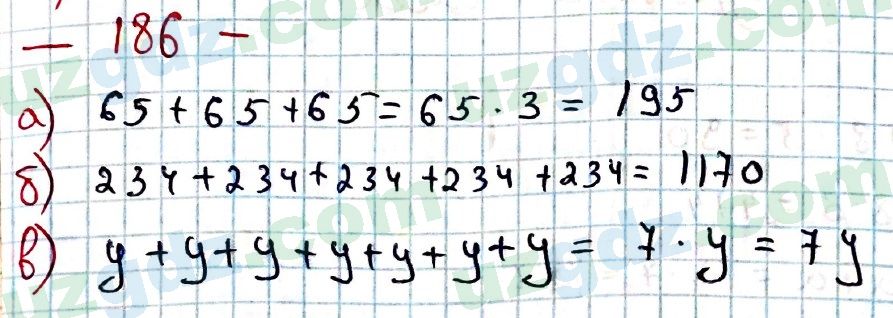 — 186 —
а) 65 + 65 + 65 = 65 · 3 = 195
б) 234 + 234 + 234 + 234 + 234 = 1170
в) y + y + y + y + y + y + y = 7 · y = 7y